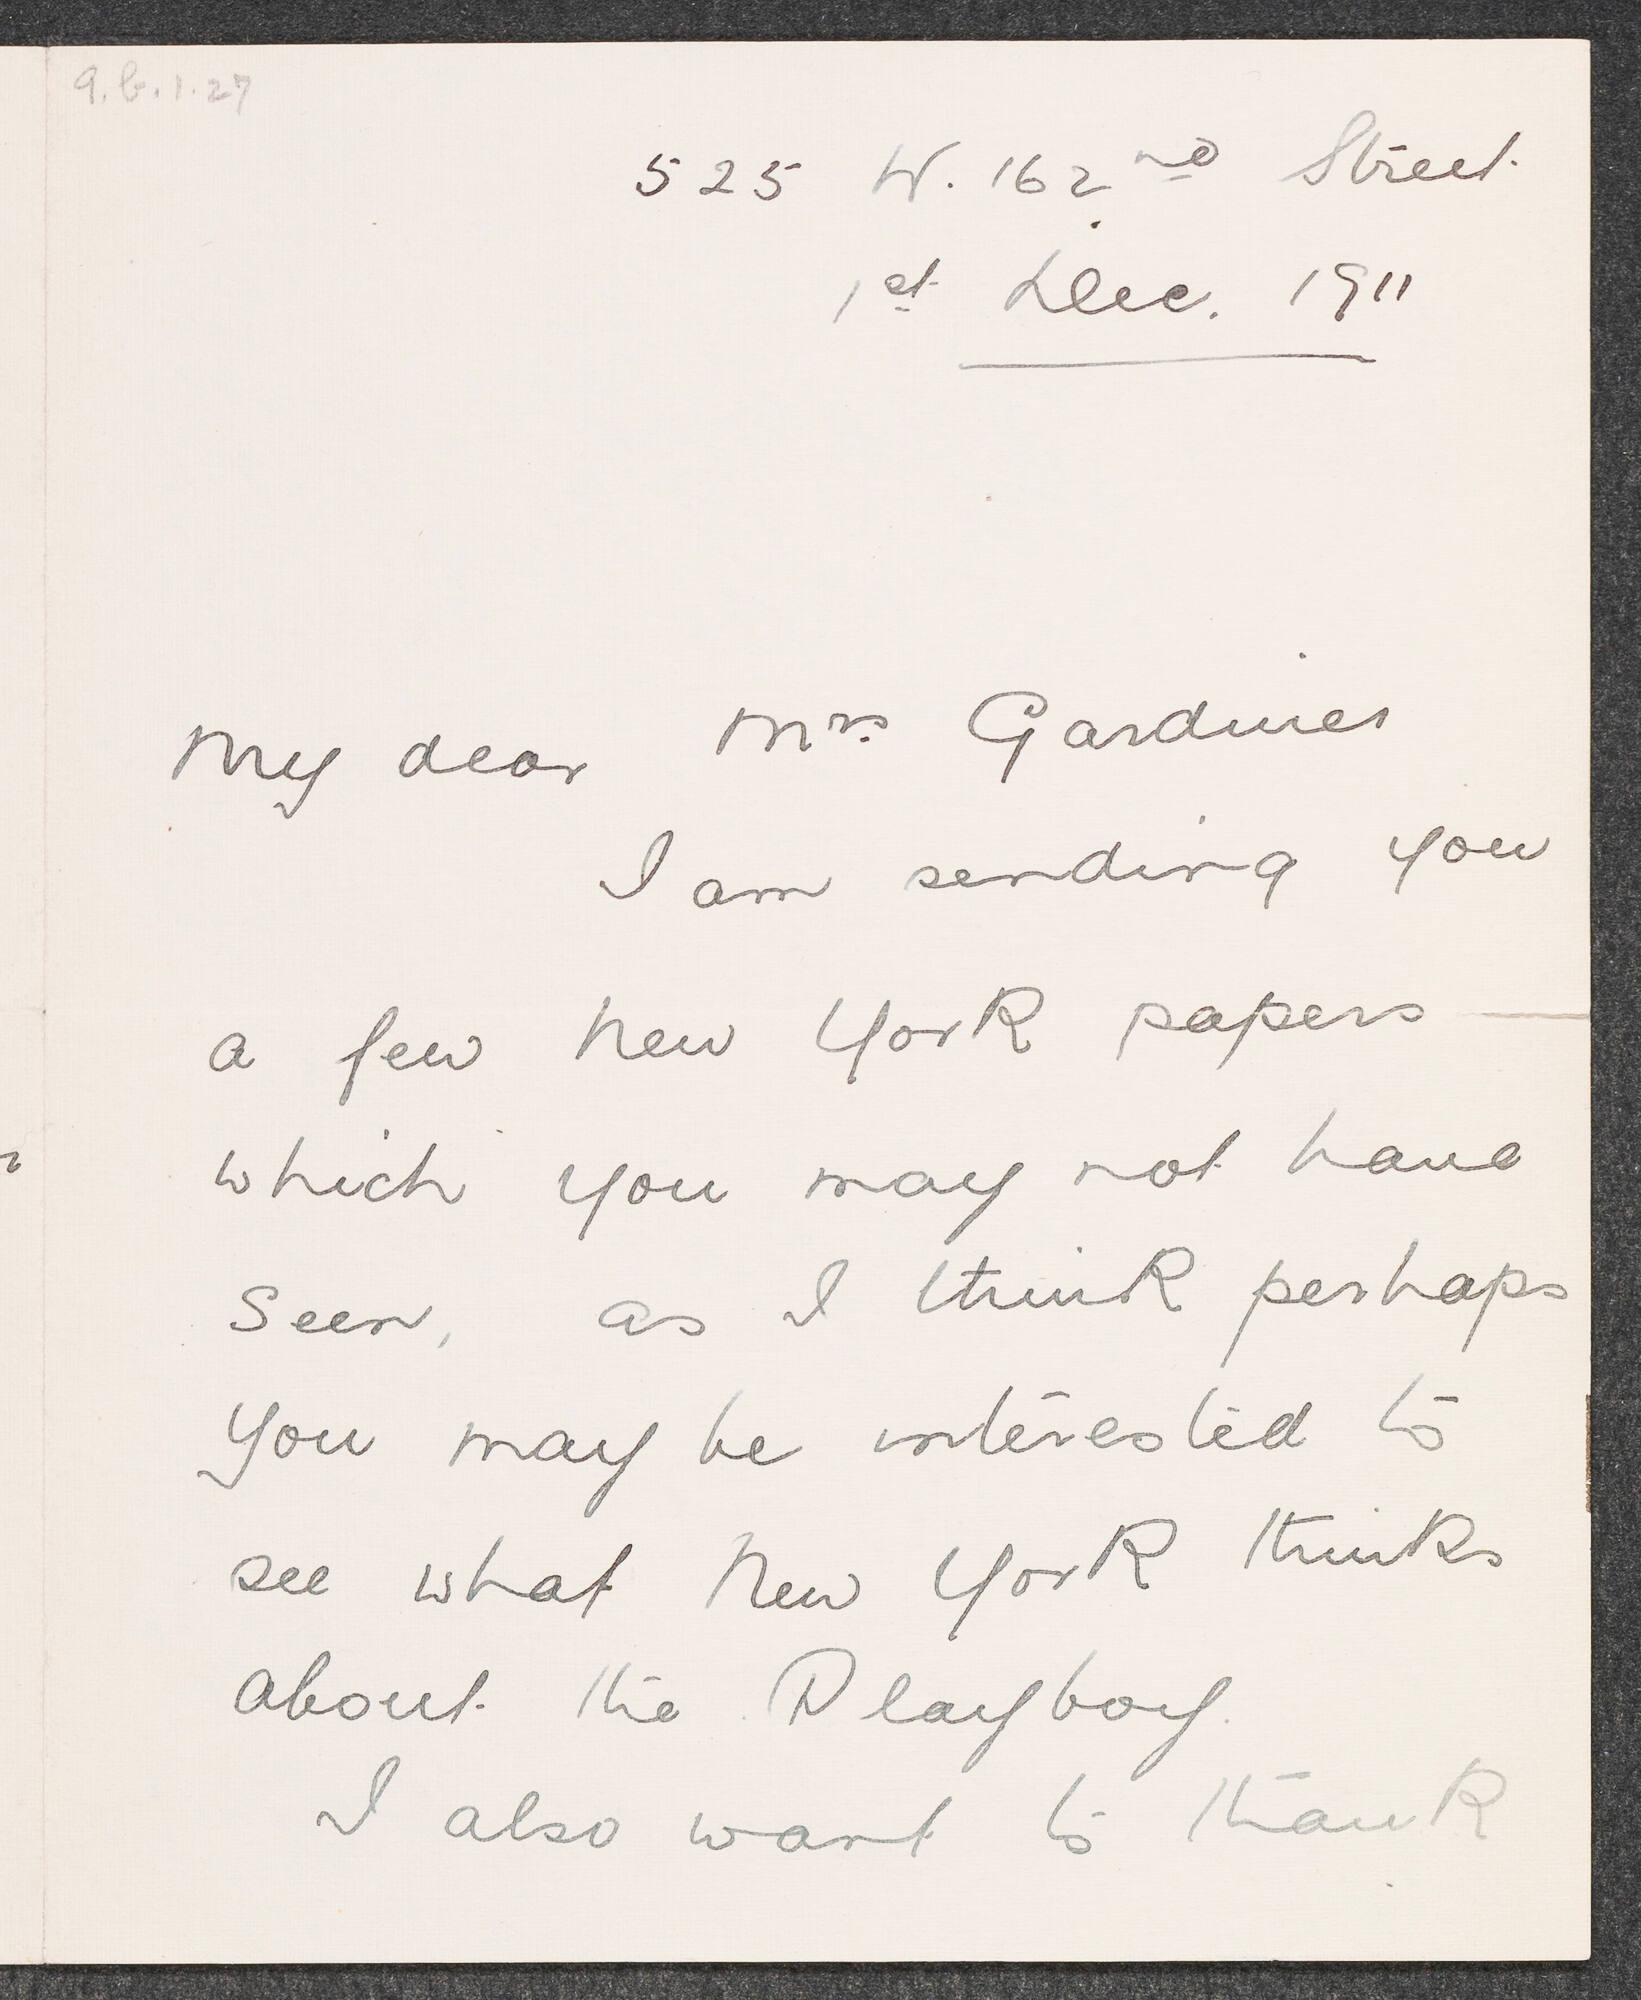 a.b.1.27
525 W. 162nd Street
1st Dec. 1911
My dear Mrs. Gardiner
I am sending you
a few New York papers
which you may not have
seen, as I think perhaps
you may be interested to
see what New York thinks
about the Playboy.
I also want to thank